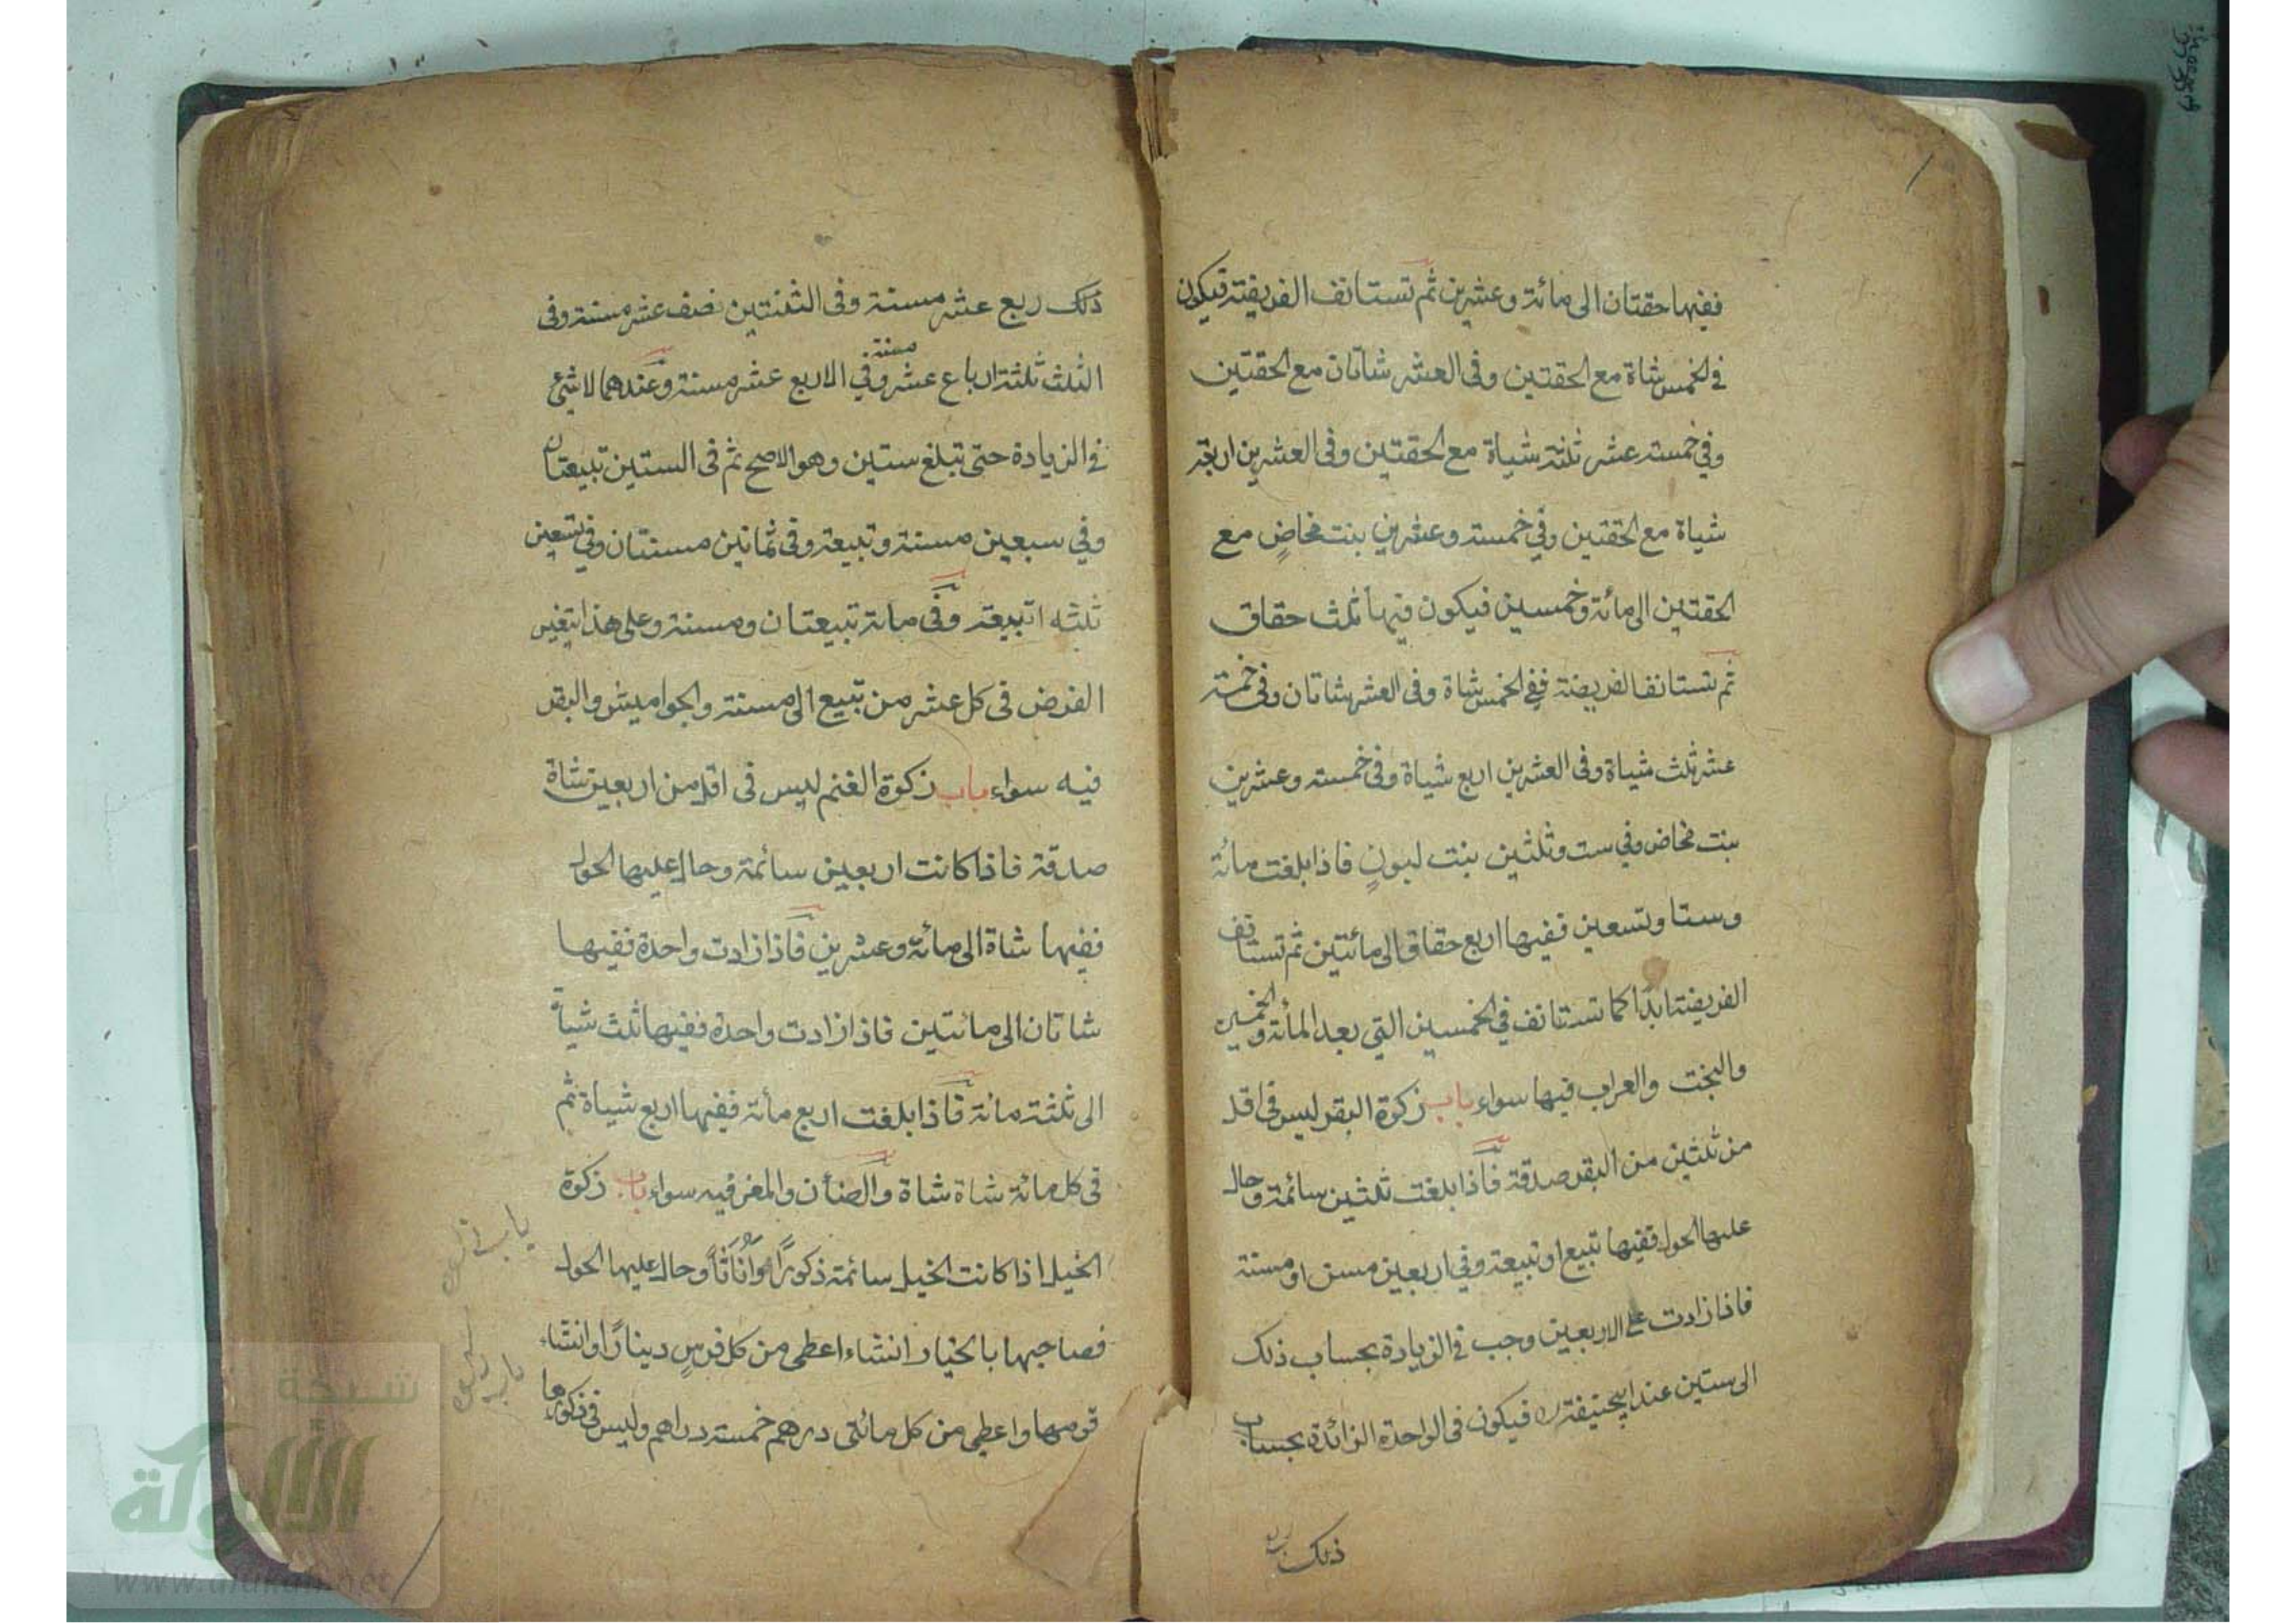 ففيها حقتان الى مائة وعشرين ثم تستانف الفريضة فيكون
في الخمس شاة مع الحقتين وفى العشر شاتان مع الحقتين
وفي خمسة عشر ثلثة شياة مع الحقتين وفى العشرين اربعة
شياة مع الحقتين وفي خمسة وعشرين بنت مخاضٍ مع
الحقتين الى مائة وخمسين فيكون فيها ثلث حقاق
ثم تستانف الفريضة ففى الخمس شاة وفى العشر شاتان وفى خمسة
عشر ثلث شياة وفى العشرين اربع شياة وفى خمسة وعشرين
بنت مخاض وفي ست وثلثين بنت لبونٍ فاذا بلغت مائة
وستا وتسعين ففيها اربع حقاق الى مائتين ثم تستانف
الفريضة ابدًا كما تستانف في الخمسين التي بعد المأئة والخمسين
والبخت والعراب فيها سواء باب زكوة البقر ليس فى اقل
من ثلثين من البقر صدقة فاذا بلغت ثلثين سائمة وحال
عليها الحول ففيها تبيع او تبيعة وفي اربعين مسن او مسنة
فاذا زادت على الاربعين وجب في الزيادة بحساب ذلك
الى ستين عند ابيحنيفة فيكون فى الواحدة الزائدة بحساب
ذلك
ذلك ربع عشر مسنة وفى الثنتين نصف عشر مسنة وفى
الثلث ثلثة ارباع عشر مسنة وفي الاربع عشر مسنة وعندهما لا شئ
في الزيادة حتى تبلغ ستين وهو الاصح ثم فى الستين تبيعتان
وفي سبعين مسنة وتبيعة وفى ثمانين مسنتان وفي تسعين
ثلثه اتبيعة وفى مائة تبيعتان ومسنة وعلى هذا يتغير
الفرض فى كل عشر من تبيع الى مسنة والجواميش والبقر
فيه سواء باب زكوة الغنم ليس فى اقل من اربعين شاة
صدقة فاذا كانت اربعين سائمة وحال عليها الحول
ففيها شاة الى مائة وعشرين فاذا زادت واحدة ففيها
شاتان الى مائتين فاذا زادت واحدة ففيها ثلث شياة
الى ثلثة مائة فاذا بلغت اربع مأئة ففيها اربع شياة ثم
فى كل مائة شاة شاة والضأن والمغر فيه سواء باب زكوة
الخيل اذا كانت الخيل سائمة ذكورًا واناثاً وحال عليها الحول
فصاحبها بالخيار انشاء اعطى من كل فرسٍ دينارًا وانشاء
قومها واعطى من كل مائتى درهم خمسة دراهم وليس فى ذكورها
باب فى
باب
شبكة
الألوكة
www.alukah.net